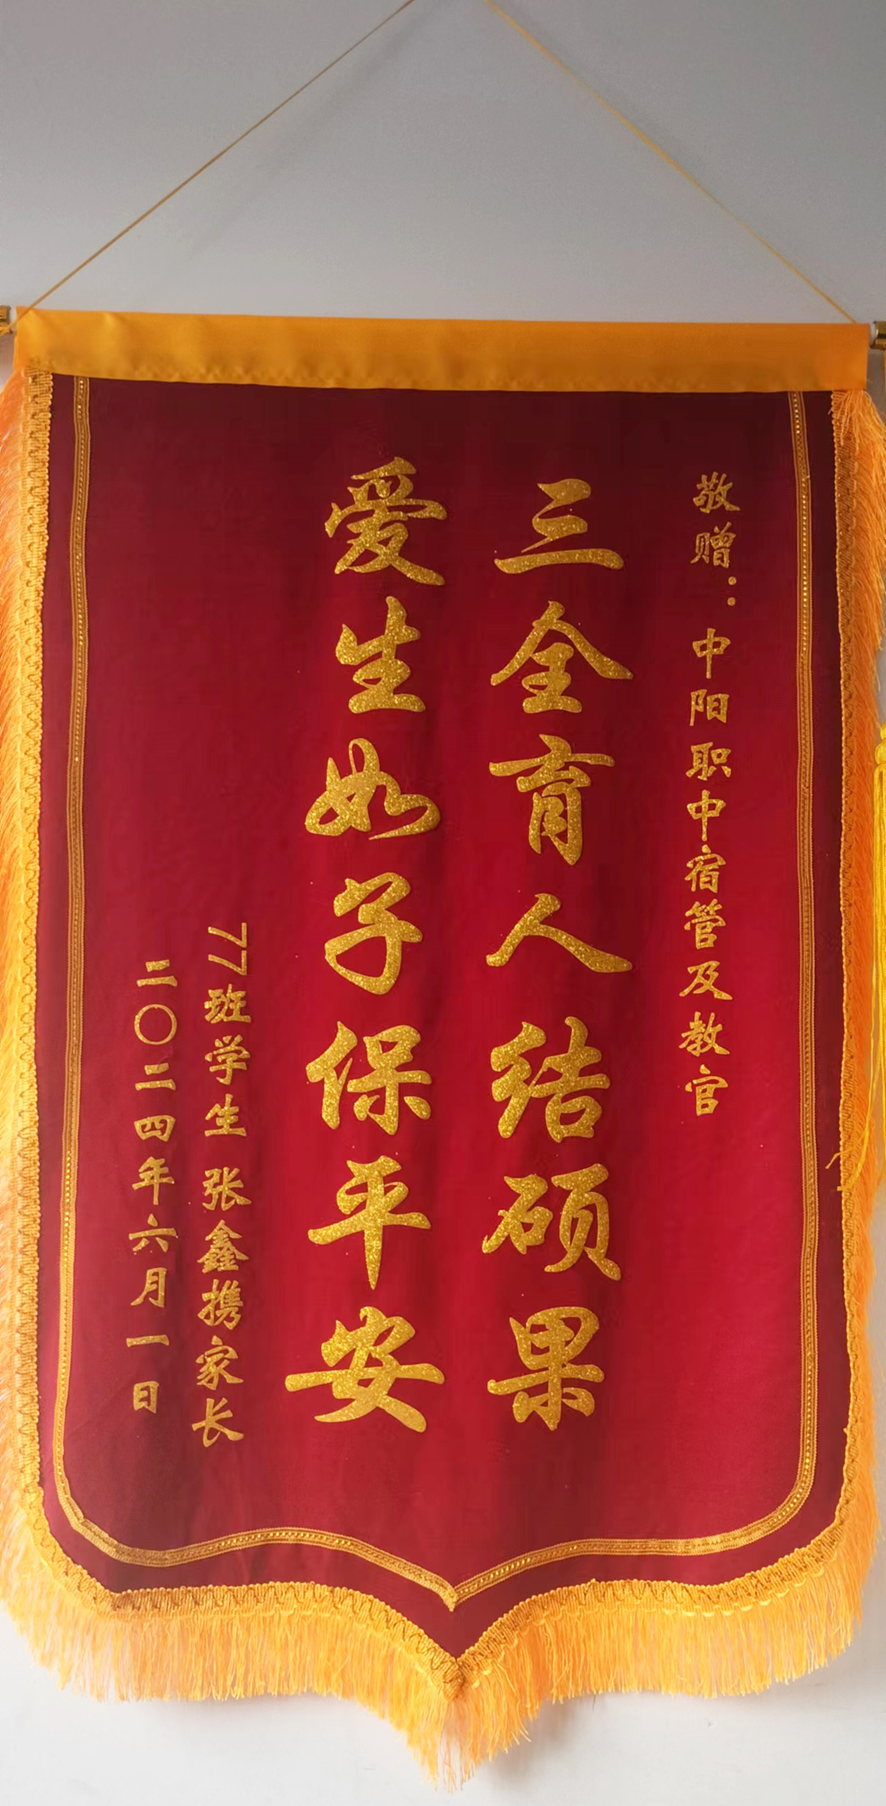 敬赠：中阳职中宿管及教官
三全育人结硕果
爱生如子保平安
77班学生 张鑫携家长
二〇二四年六月一日